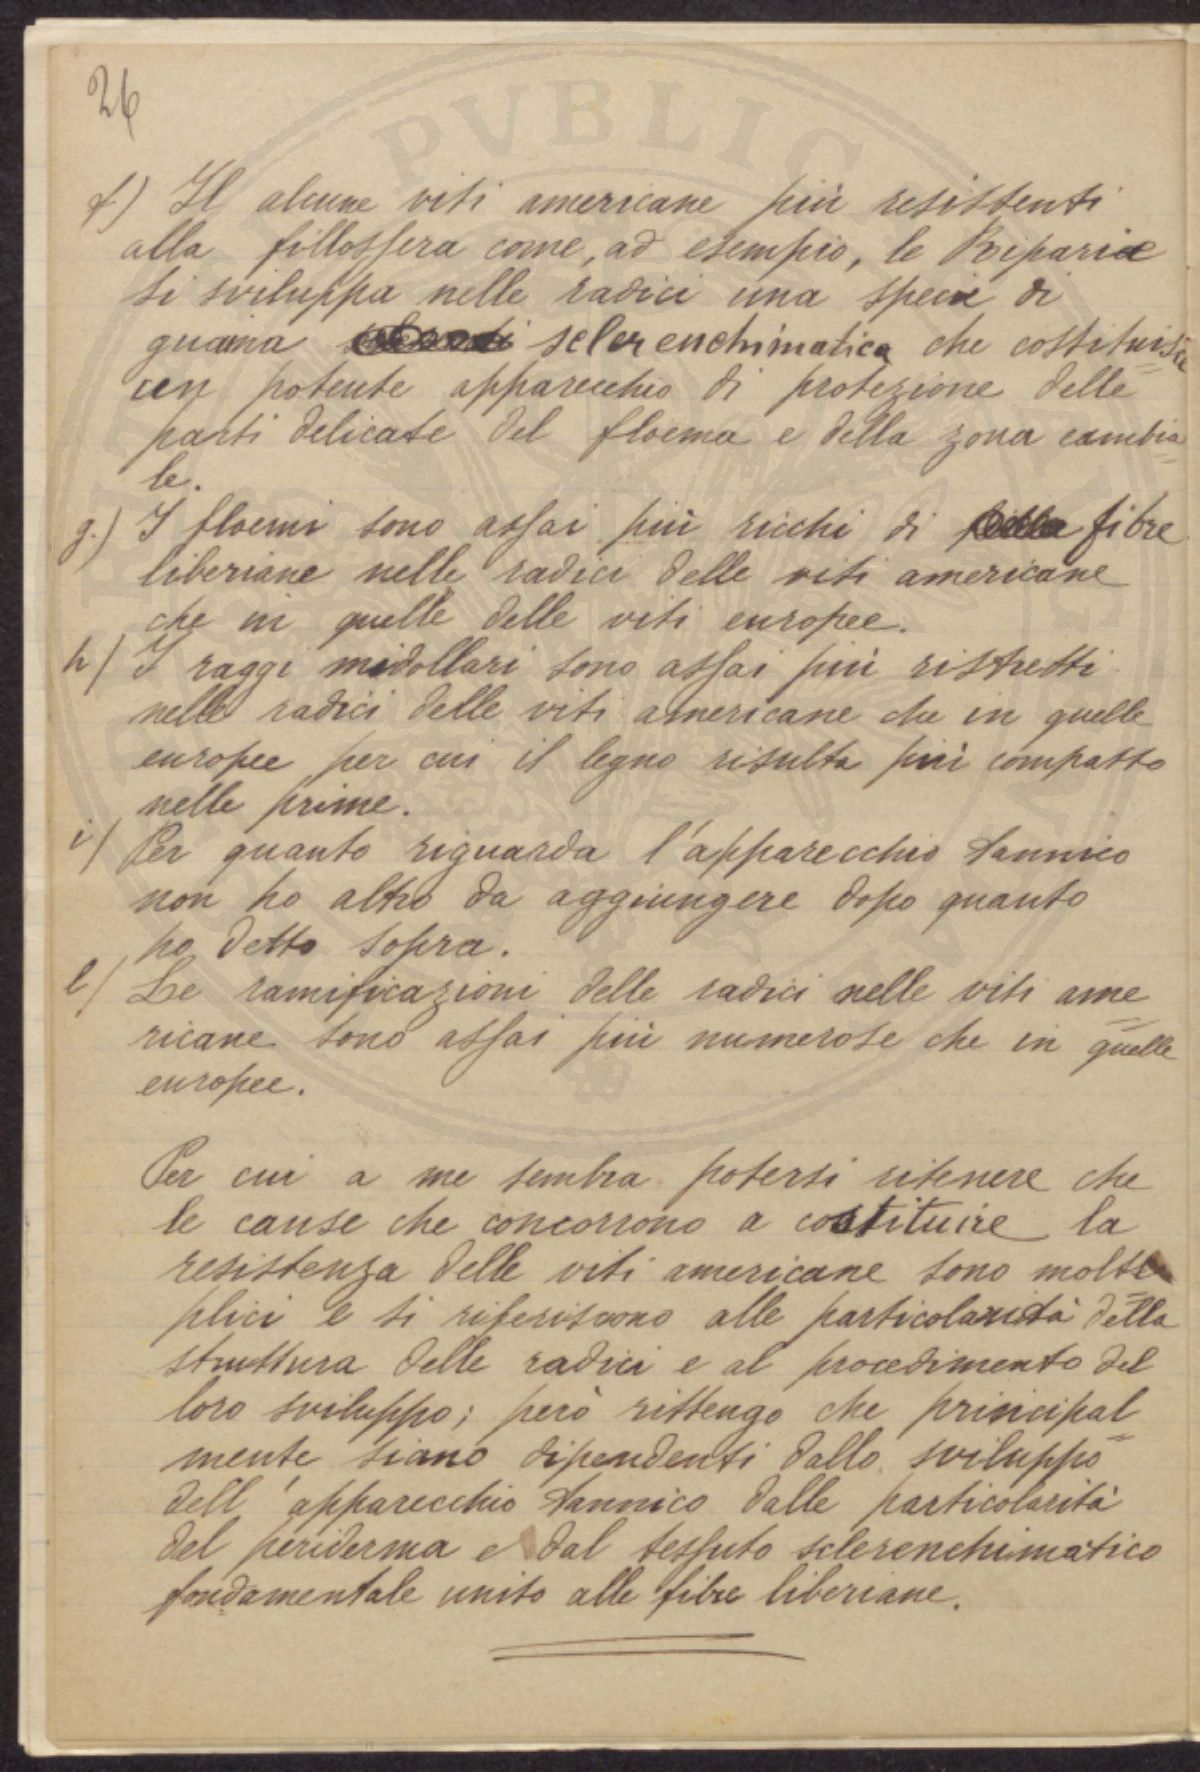 26
f) Il alcune viti americane più resistenti
alla fillossera come, ad esempio, le Riparie
si sviluppa nelle radici una specie di
guaina sclerenchimatica che costituisce
un potente apparecchio di protezione delle
parti delicate del floema e della zona cambia
le.
g.) I floemi sono assai più ricchi di fibre
liberiane nelle radici delle viti americane
che in quelle delle viti europee.
h) I raggi midollari sono assai più ristretti
nelle radici delle viti americane che in quelle
europee per cui il legno risulta più compatto
nelle prime.
i) Per quanto riguarda l'apparecchio tannico
non ho altro da aggiungere dopo quanto
ho detto sopra.
l) Le ramificazioni delle radici nelle viti ame
ricane sono assai più numerose che in quelle
europee.
Per cui a me sembra potersi ritenere che
le cause che concorrono a costituire la
resistenza delle viti americane sono molte
plici e si riferiscono alle particolarità della
struttura delle radici e al procedimento del
loro sviluppo; però rittengo che principal
mente siano dipendenti dallo sviluppo
dell'apparecchio tannico dalle particolarità
del periderma e dal tessuto sclerenchimatico
fondamentale unito alle fibre liberiane.
PVBLIC